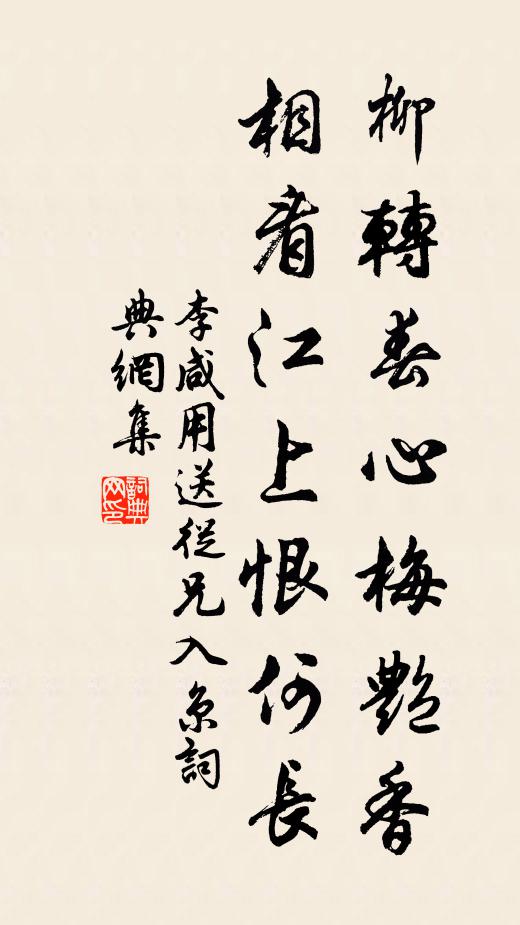 柳轉春心梅艷香
相看江上恨何長
李咸用送從兄入京詞
典網集
詞典網印